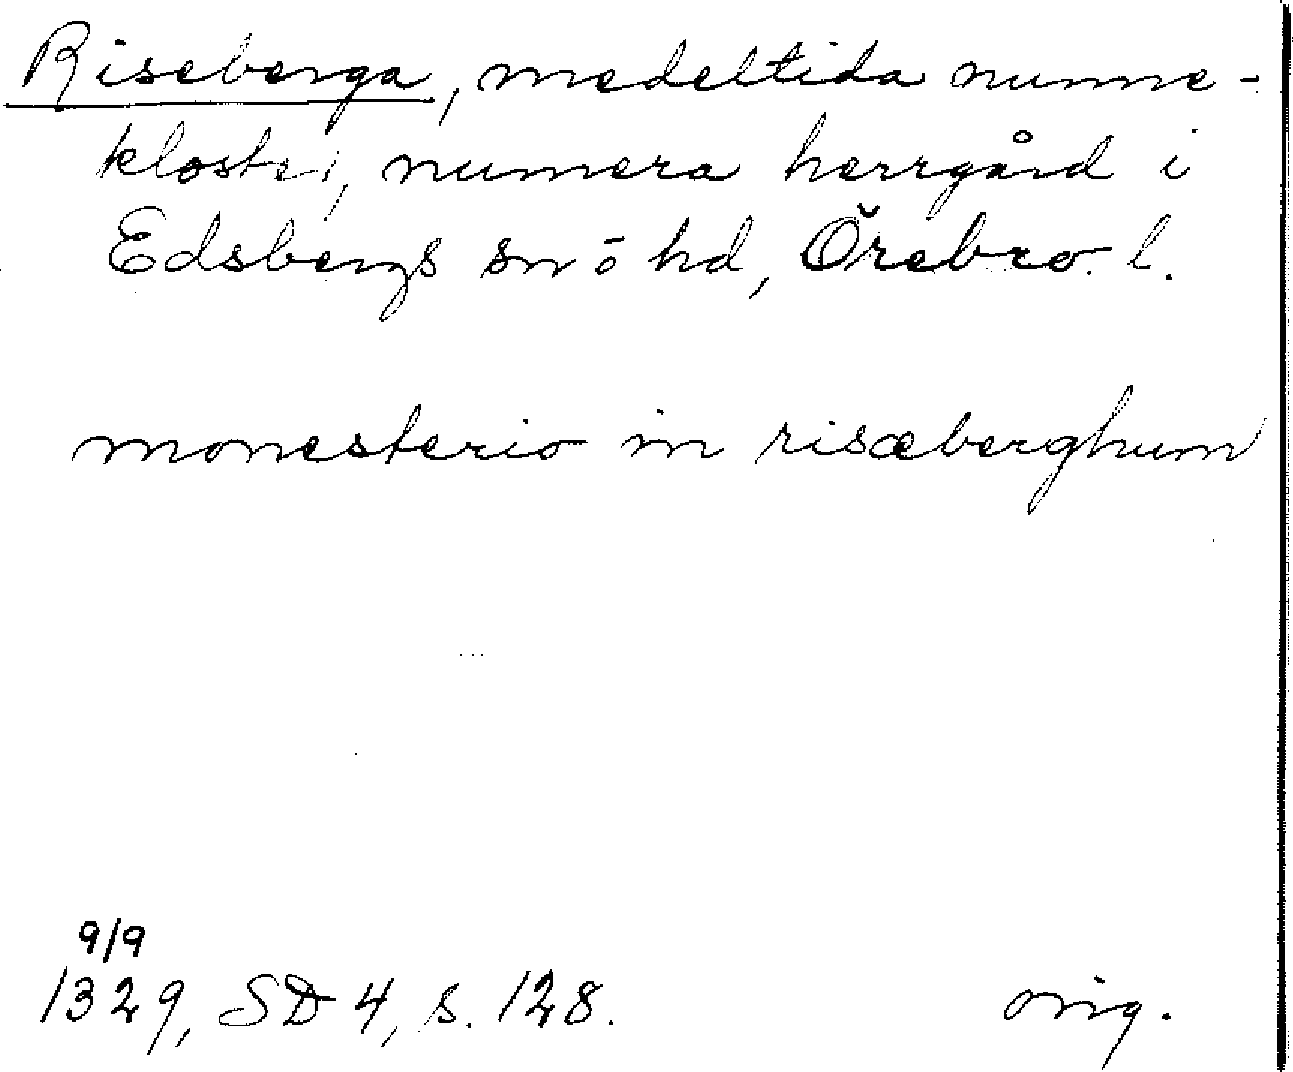 Riseberga, medeltida nunne-
kloster, numera herrgård i
Edsbergs sn o hd, Örebro l.
monesterio in risæberghum
9/9
1329, SD 4, s. 128.
orig.